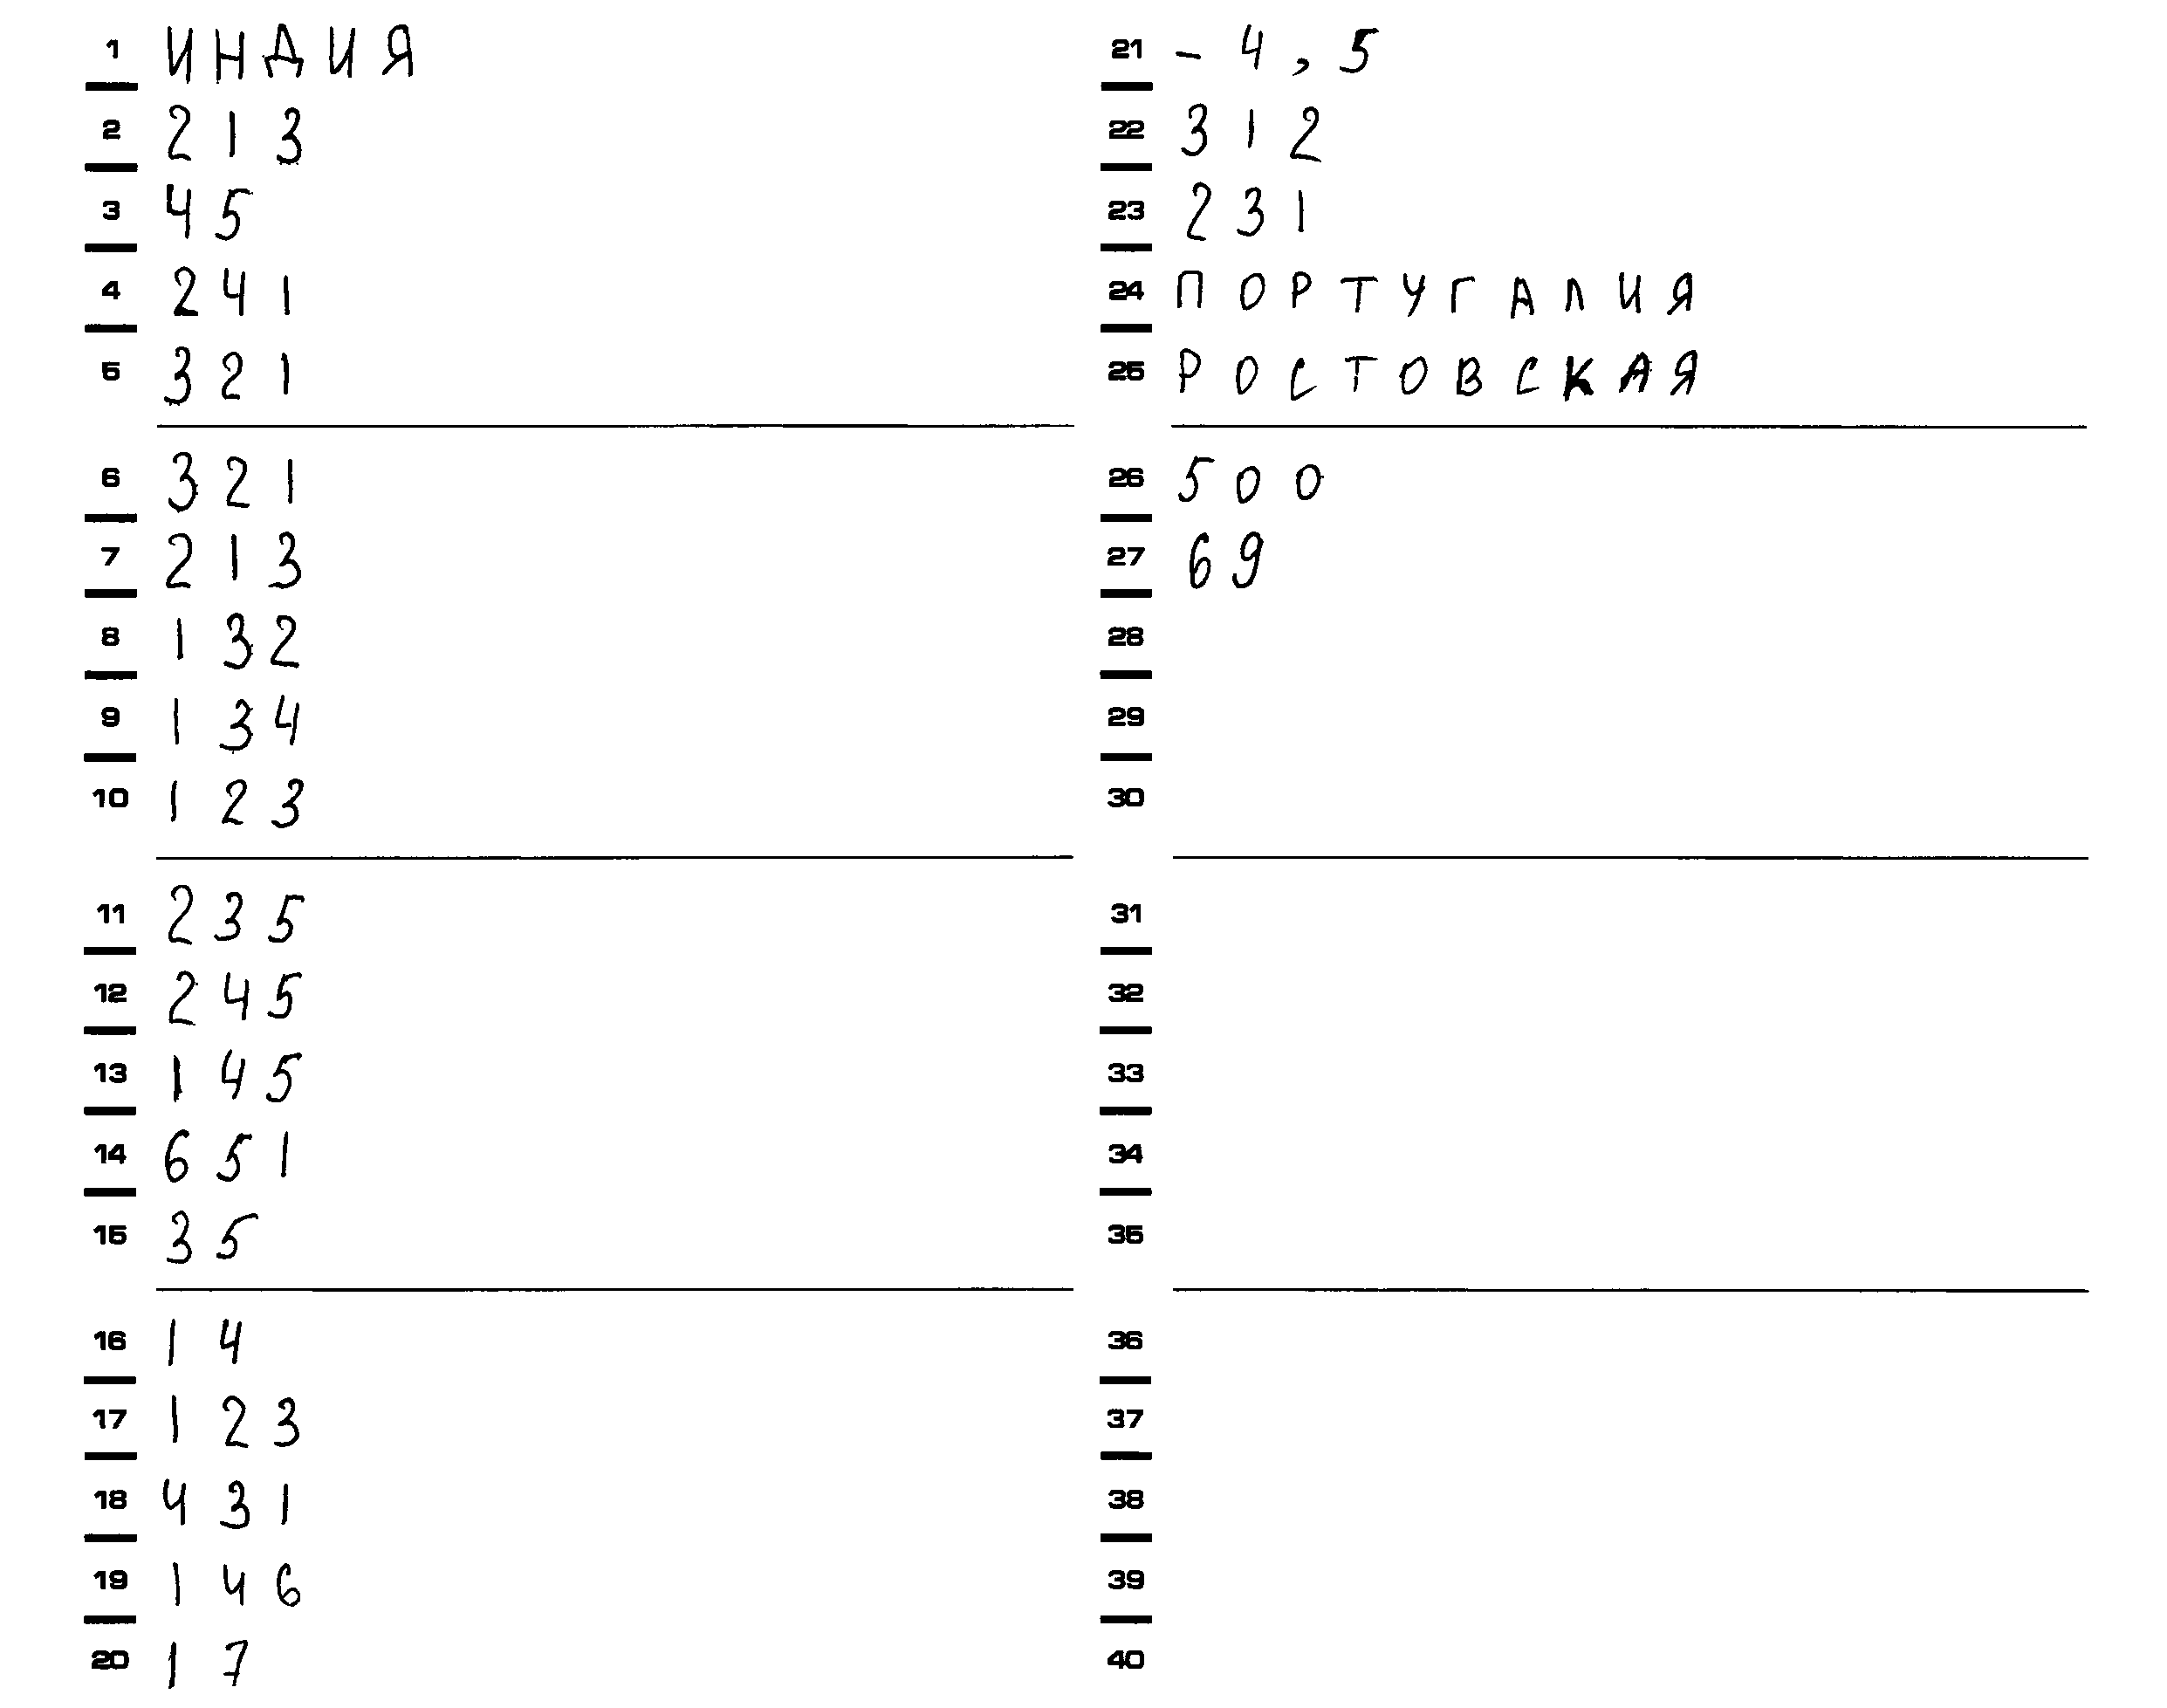 1 ИНДИЯ
2 213
3 45
4 241
5 321
6 321
7 213
8 132
9 134
10 123
11 235
12 245
13 145
14 651
15 35
16 14
17 123
18 431
19 146
20 17
21 -4,5
22 312
23 231
24 ПОРТУГАЛИЯ
25 РОСТОВСКАЯ
26 500
27 69
28
29
30
31
32
33
34
35
36
37
38
39
40